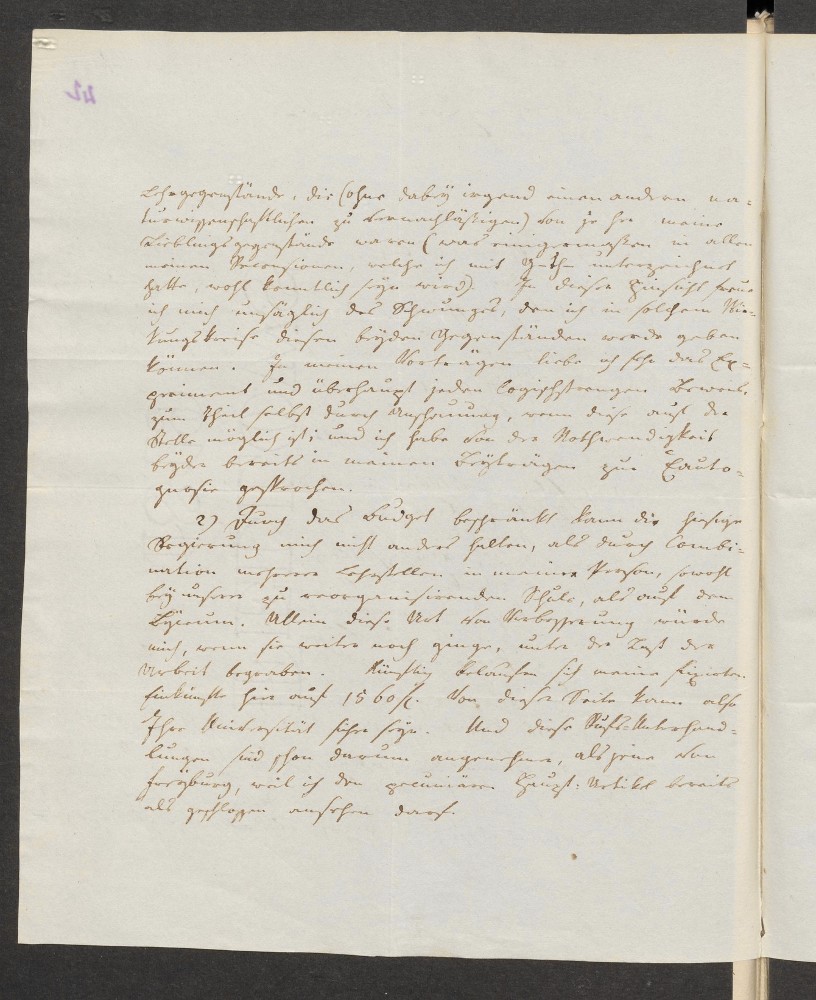 Lehrgegenstände, die (ohne dabey irgend einen andern na-
turwissenschaftlichen zu vernachläßigen) von je her meine
Lieblingsgegenstände waren (was einigermaßen in allen
meinen Recensionen, welche ich mit unterzeichnet
hatte, wohl kenntlich seyn wird). In dieser Hinsicht freue
ich mich unsäglich des Schwunges, den ich in solchem Wir-
kungskreise diesen beyden Gegenständen werde geben
können. In meinen Vorträgen liebe ich sehr das Ex-
periment und überhaupt jeden logischstrengen Beweis,
zum Theil selbst durch Anschauung, wenn diese auf der
Stelle möglich ist; und ich habe von der Nothwendigkeit
beyder bereits in meinen Beyträgen zur
gnosie gesprochen.
2) Durch das Budget beschränkt kann die hiesige
Regierung mich nicht anders halten, als durch Combi-
nation mehrerer Lehrstellen in meiner Person, sowohl
bey unserer zu reorganisirenden Schule, als auf dem
Lyceum. Allein diese Art von Verbesserung würde
mich, wenn sie weiter noch ginge, unter der Last der
Arbeit begraben. Künftig belaufen sich meine fixirten
Einkünfte hier auf 1560 f. Von dieser Seite kann also
Ihre Universität sicher seyn. Und diese Rufs-Unterhand-
lungen sind schon darum angenehmer, als jene von
Freyburg, weil ich den pecuniären Haupt-Artikel bereits
als geschlossen ansehen darf.